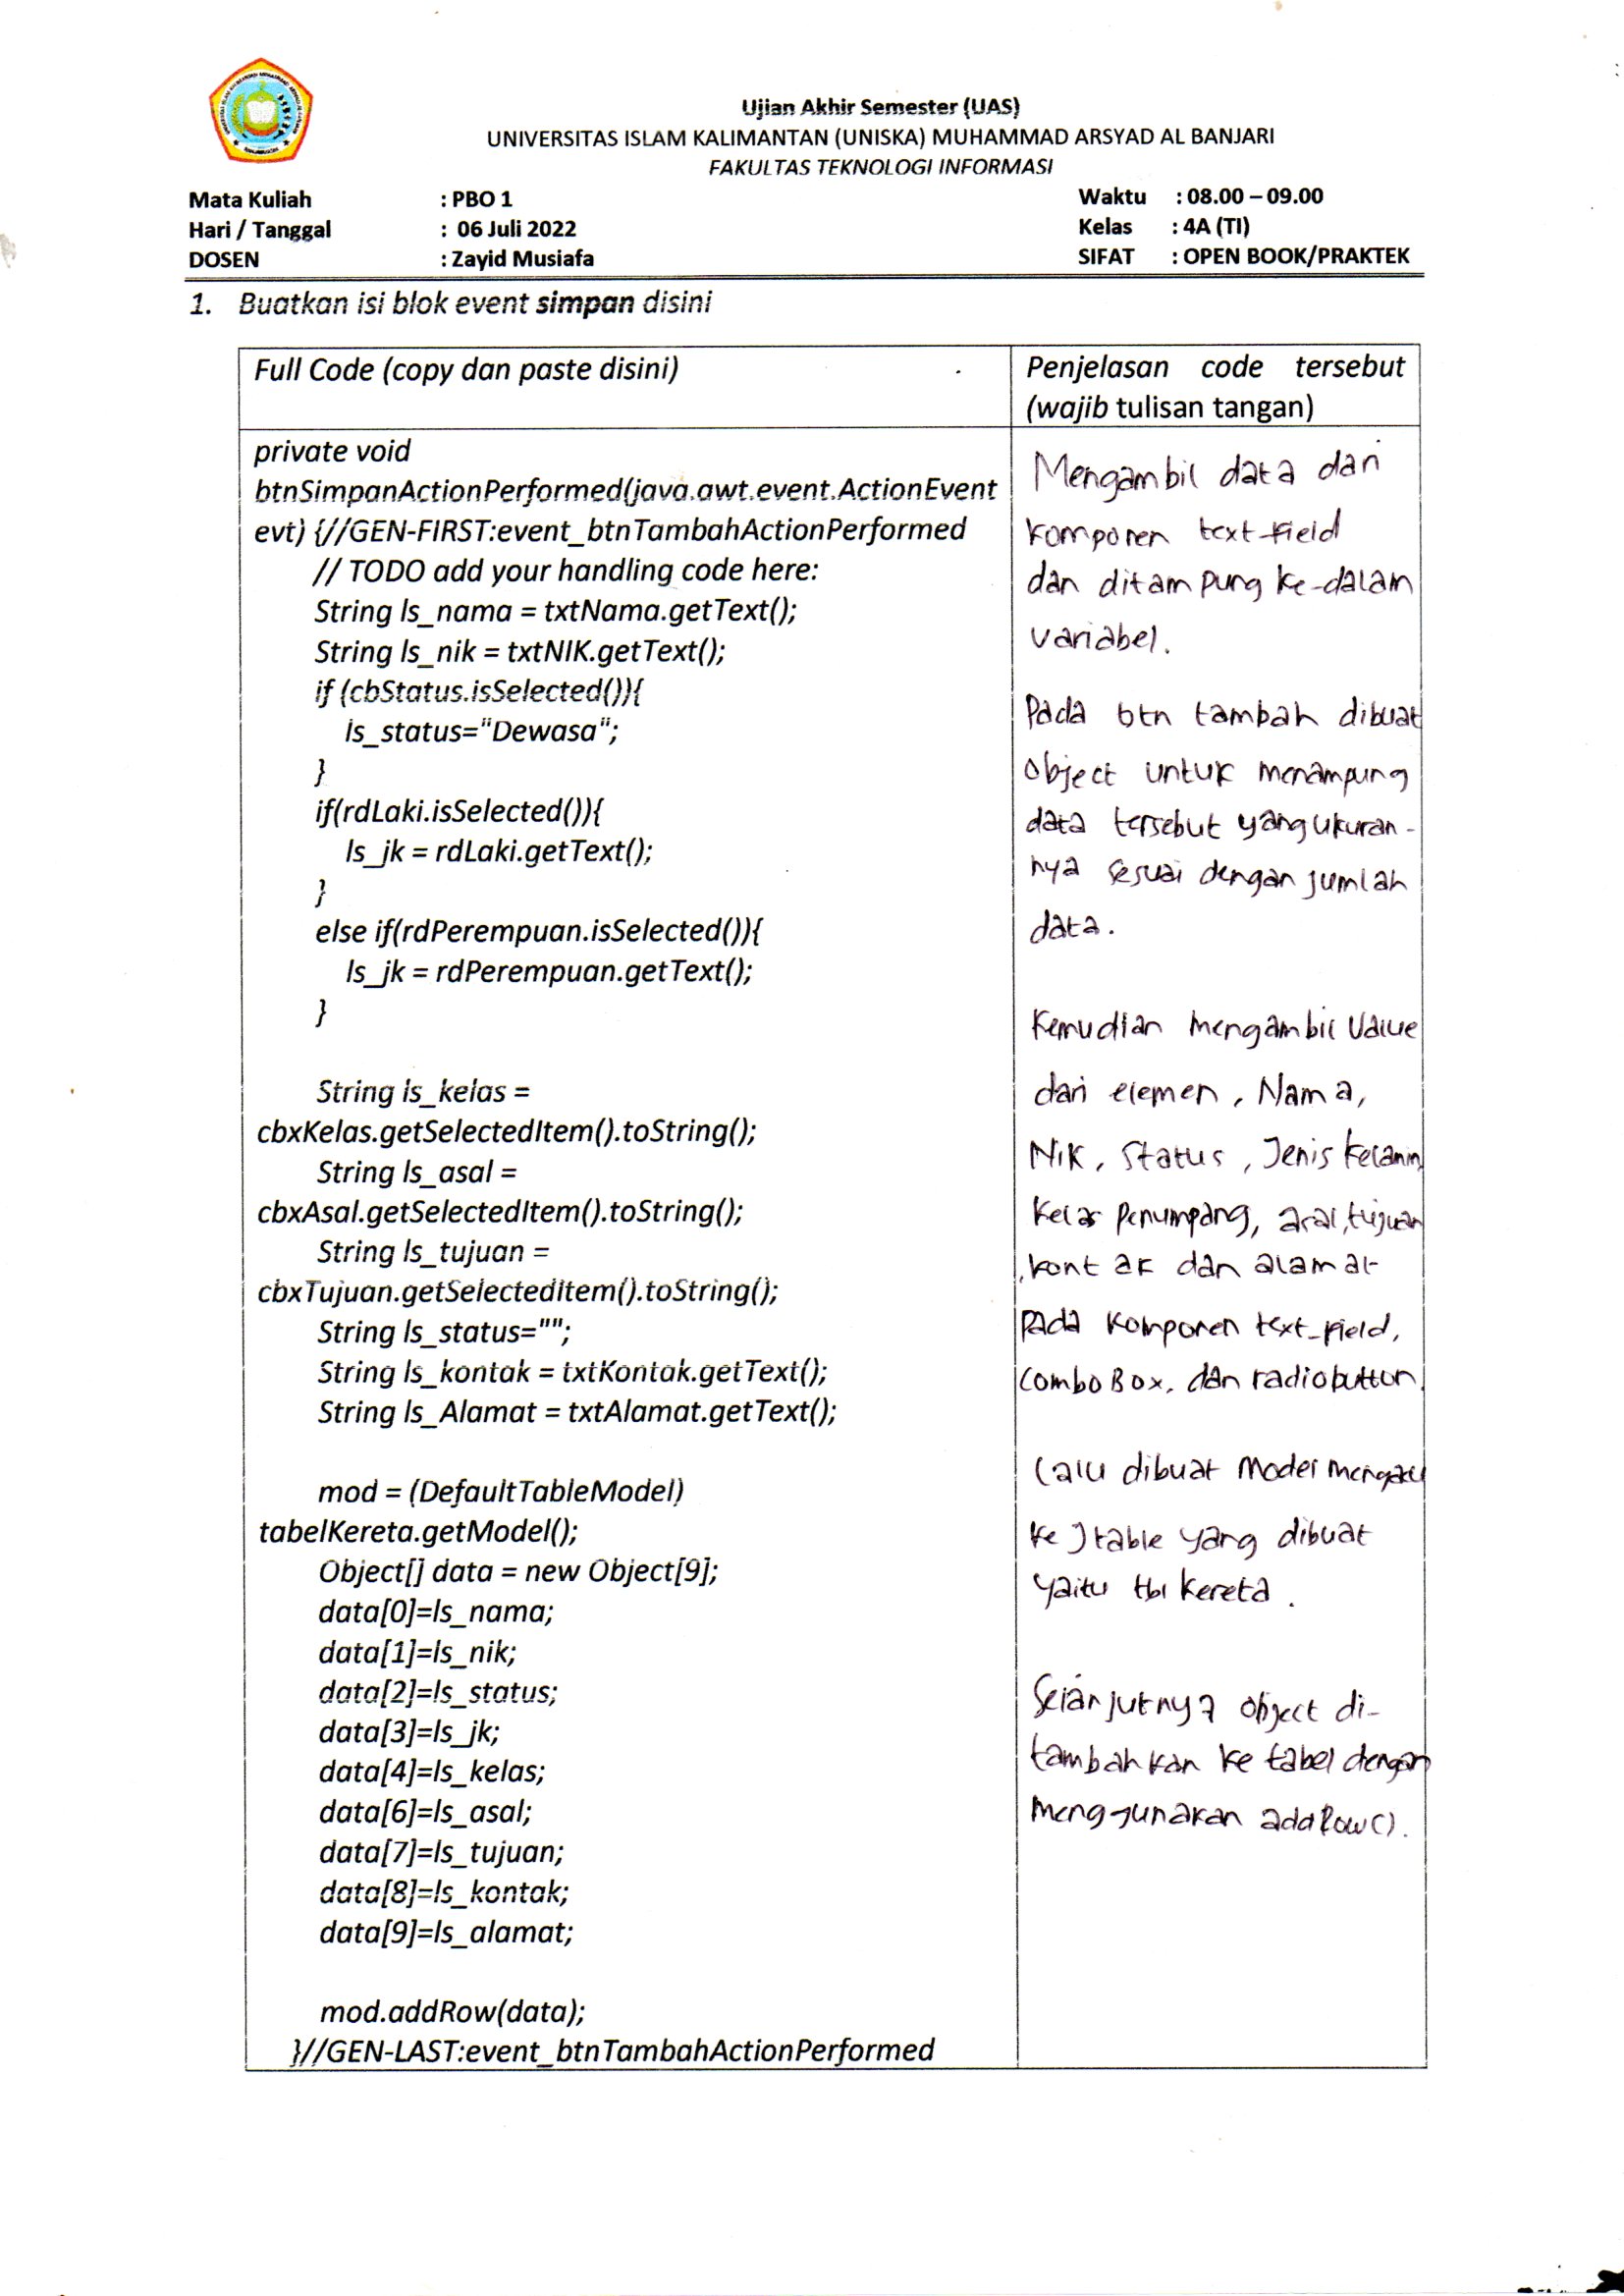 Ujian Akhir Semester (UAS)
UNIVERSITAS ISLAM KALIMANTAN (UNISKA) MUHAMMAD ARSYAD AL BANJARI
FAKULTAS TEKNOLOGI INFORMASI
Mata Kuliah : PBO 1 Waktu : 08.00 – 09.00
Hari / Tanggal : 06 Juli 2022 Kelas : 4A (TI)
DOSEN : Zayid Musiafa SIFAT : OPEN BOOK/PRAKTEK
1. Buatkan isi blok event simpan disini
Full Code (copy dan paste disini)
private void
btnSimpanActionPerformed(java.awt.event.ActionEvent
evt) {//GEN-FIRST:event_btnTambahActionPerformed
// TODO add your handling code here:
String ls_nama = txtNama.getText();
String ls_nik = txtNIK.getText();
if (cbStatus.isSelected()){
ls_status="Dewasa";
}
if(rdLaki.isSelected()){
ls_jk = rdLaki.getText();
}
else if(rdPerempuan.isSelected()){
ls_jk = rdPerempuan.getText();
}
String ls_kelas =
cbxKelas.getSelectedItem().toString();
String ls_asal =
cbxAsal.getSelectedItem().toString();
String ls_tujuan =
cbxTujuan.getSelectedItem().toString();
String ls_status="";
String ls_kontak = txtKontak.getText();
String ls_Alamat = txtAlamat.getText();
mod = (DefaultTableModel)
tabelKereta.getModel();
Object[] data = new Object[9];
data[0]=ls_nama;
data[1]=ls_nik;
data[2]=ls_status;
data[3]=ls_jk;
data[4]=ls_kelas;
data[6]=ls_asal;
data[7]=ls_tujuan;
data[8]=ls_kontak;
data[9]=ls_alamat;
mod.addRow(data);
}//GEN-LAST:event_btnTambahActionPerformed
Penjelasan code tersebut
(wajib tulisan tangan)
Mengambil data dari
komponen text-field
dan ditampung ke-dalam
variabel.
Pada btn tambah dibuat
object untuk menampung
data tersebut yang ukuran-
nya sesuai dengan jumlah
data.
Kemudian mengambil Value
dari elemen, Nama,
Nik, Status, Jenis kelamin
kelas penumpang, asal, tujuan
, kontak dan alamat
pada komponen text_field,
Combo Box, dan radiobutton.
Lalu dibuat Model mengacu
ke Jtable yang dibuat
yaitu tbl kereta.
Selanjutnya object di-
tambahkan ke tabel dengan
menggunakan addRow().